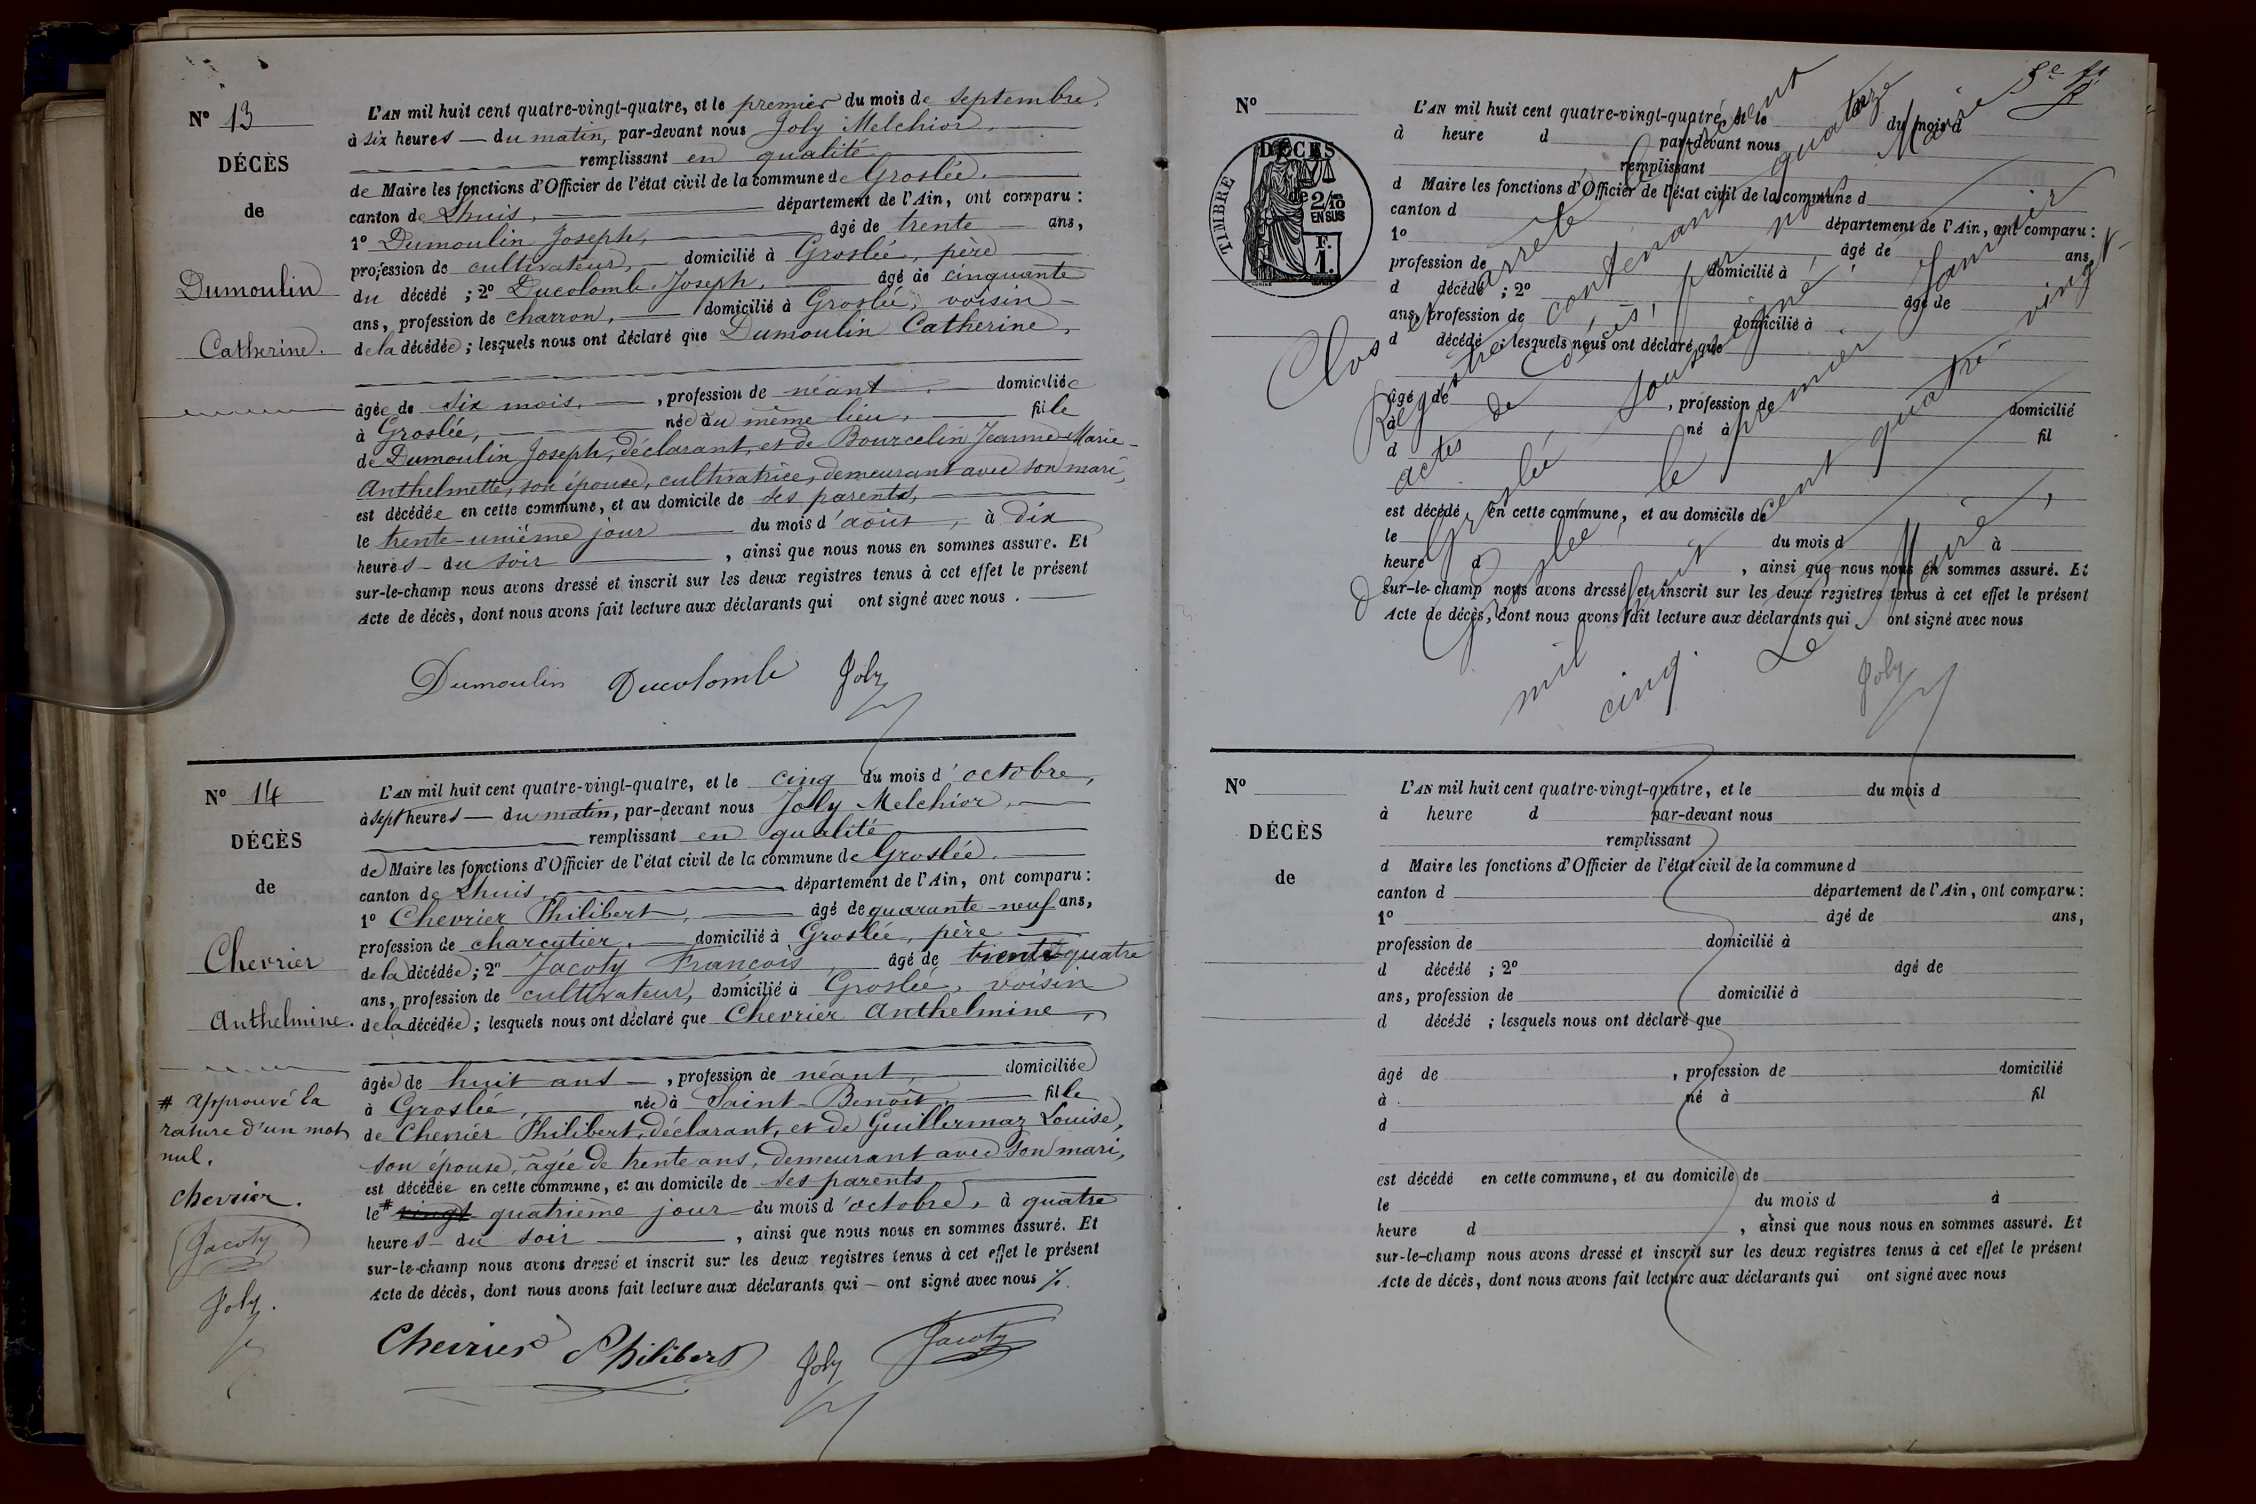 N° 13
DÉCÈS
de
Dumoulin
Catherine.
L'AN mil huit cent quatre-vingt-quatre, et le premier du mois de septembre,
à six heures — du matin, par-devant nous Joly Melchior,
remplissant en qualité
de Maire les fonctions d'Officier de l'état civil de la commune de Groslée.
canton de Lhuis, département de l'Ain, ont comparu :
1° Dumoulin Joseph, âgé de trente — ans,
profession de cultivateur, domicilié à Groslée, père
du décédé ; 2° Ducolomb Joseph, âgé de cinquante
ans, profession de charron, domicilié à Groslée, voisin
de la décédée ; lesquels nous ont déclaré que Dumoulin Catherine,
âgée de six mois, profession de néant, domiciliée
à Groslée, née au même lieu, fille
de Dumoulin Joseph, déclarant, et de Bourcelin Jeanne-Marie-
Anthelmette, son épouse, cultivatrice, demeurant avec son mari,
est décédée en cette commune, et au domicile de ses parents,
le trente-unième jour du mois d'août, à dix
heures du soir, ainsi que nous nous en sommes assuré. Et
sur-le-champ nous avons dressé et inscrit sur les deux registres tenus à cet effet le présent
Acte de décès, dont nous avons fait lecture aux déclarants qui ont signé avec nous.
Dumoulin Ducolomb Joly
N° 14
DÉCÈS
de
Chevrier
Anthelmine.
L'AN mil huit cent quatre-vingt-quatre, et le cinq du mois d'octobre,
à sept heures — du matin, par-devant nous Joly Melchior,
remplissant en qualité
de Maire les fonctions d'Officier de l'état civil de la commune de Groslée.
canton de Lhuis, département de l'Ain, ont comparu :
1° Chevrier Philibert, âgé de quarante-neuf ans,
profession de charcutier, domicilié à Groslée, père
de la décédée ; 2° Jacoty François, âgé de trente quatre
ans, profession de cultivateur, domicilié à Groslée, voisin
de la décédée ; lesquels nous ont déclaré que Chevrier Anthelmine,
âgée de huit ans, profession de néant, domiciliée
à Groslée, née à Saint-Benoît, fille
de Chevrier Philibert, déclarant, et de Guillermaz Louise,
son épouse, âgée de trente ans, demeurant avec son mari,
est décédée en cette commune, et au domicile de ses parents
le # vingt quatrième jour du mois d'octobre, à quatre
heures du soir, ainsi que nous nous en sommes assuré. Et
sur-le-champ nous avons dressé et inscrit sur les deux registres tenus à cet effet le présent
Acte de décès, dont nous avons fait lecture aux déclarants qui — ont signé avec nous
# Approuvé la
rature d'un mot
nul.
Chevrier.
Jacoty
Joly.
Chevrier Philibert Joly Jacoty
N°
TIMBRE
DÉCÈS
de
2/10
EN SUS
F.
1.
L'AN mil huit cent quatre-vingt-quatre, et le du mois d
à heure d par-devant nous
remplissant
d Maire les fonctions d'Officier de l'état civil de la commune d
canton d département de l'Ain, ont comparu :
1° âgé de ans,
profession de domicilié à
d décédé ; 2° âgé de
ans, profession de domicilié à
d décédé ; lesquels nous ont déclaré que
âgé de , profession de domicilié
à né à fil
d
est décédé en cette commune, et au domicile de
le du mois d à
heure d , ainsi que nous nous en sommes assuré. Et
sur-le-champ nous avons dressé et inscrit sur les deux registres tenus à cet effet le présent
Acte de décès, dont nous avons fait lecture aux déclarants qui ont signé avec nous
Clos et arrêté le présent
Registre contenant quatorze
actes de décès, par nous Maire
de Groslée, soussigné,
Groslée, le premier Janvier
mil huit cent quatre-vingt-
cinq.
Le Maire,
Joly
N°
DÉCÈS
de
L'AN mil huit cent quatre-vingt-quatre, et le du mois d
à heure d par-devant nous
remplissant
d Maire les fonctions d'Officier de l'état civil de la commune d
canton d département de l'Ain, ont comparu :
1° âgé de ans,
profession de domicilié à
d décédé ; 2° âgé de
ans, profession de domicilié à
d décédé ; lesquels nous ont déclaré que
âgé de , profession de domicilié
à né à fil
d
est décédé en cette commune, et au domicile de
le du mois d à
heure d , ainsi que nous nous en sommes assuré. Et
sur-le-champ nous avons dressé et inscrit sur les deux registres tenus à cet effet le présent
Acte de décès, dont nous avons fait lecture aux déclarants qui ont signé avec nous